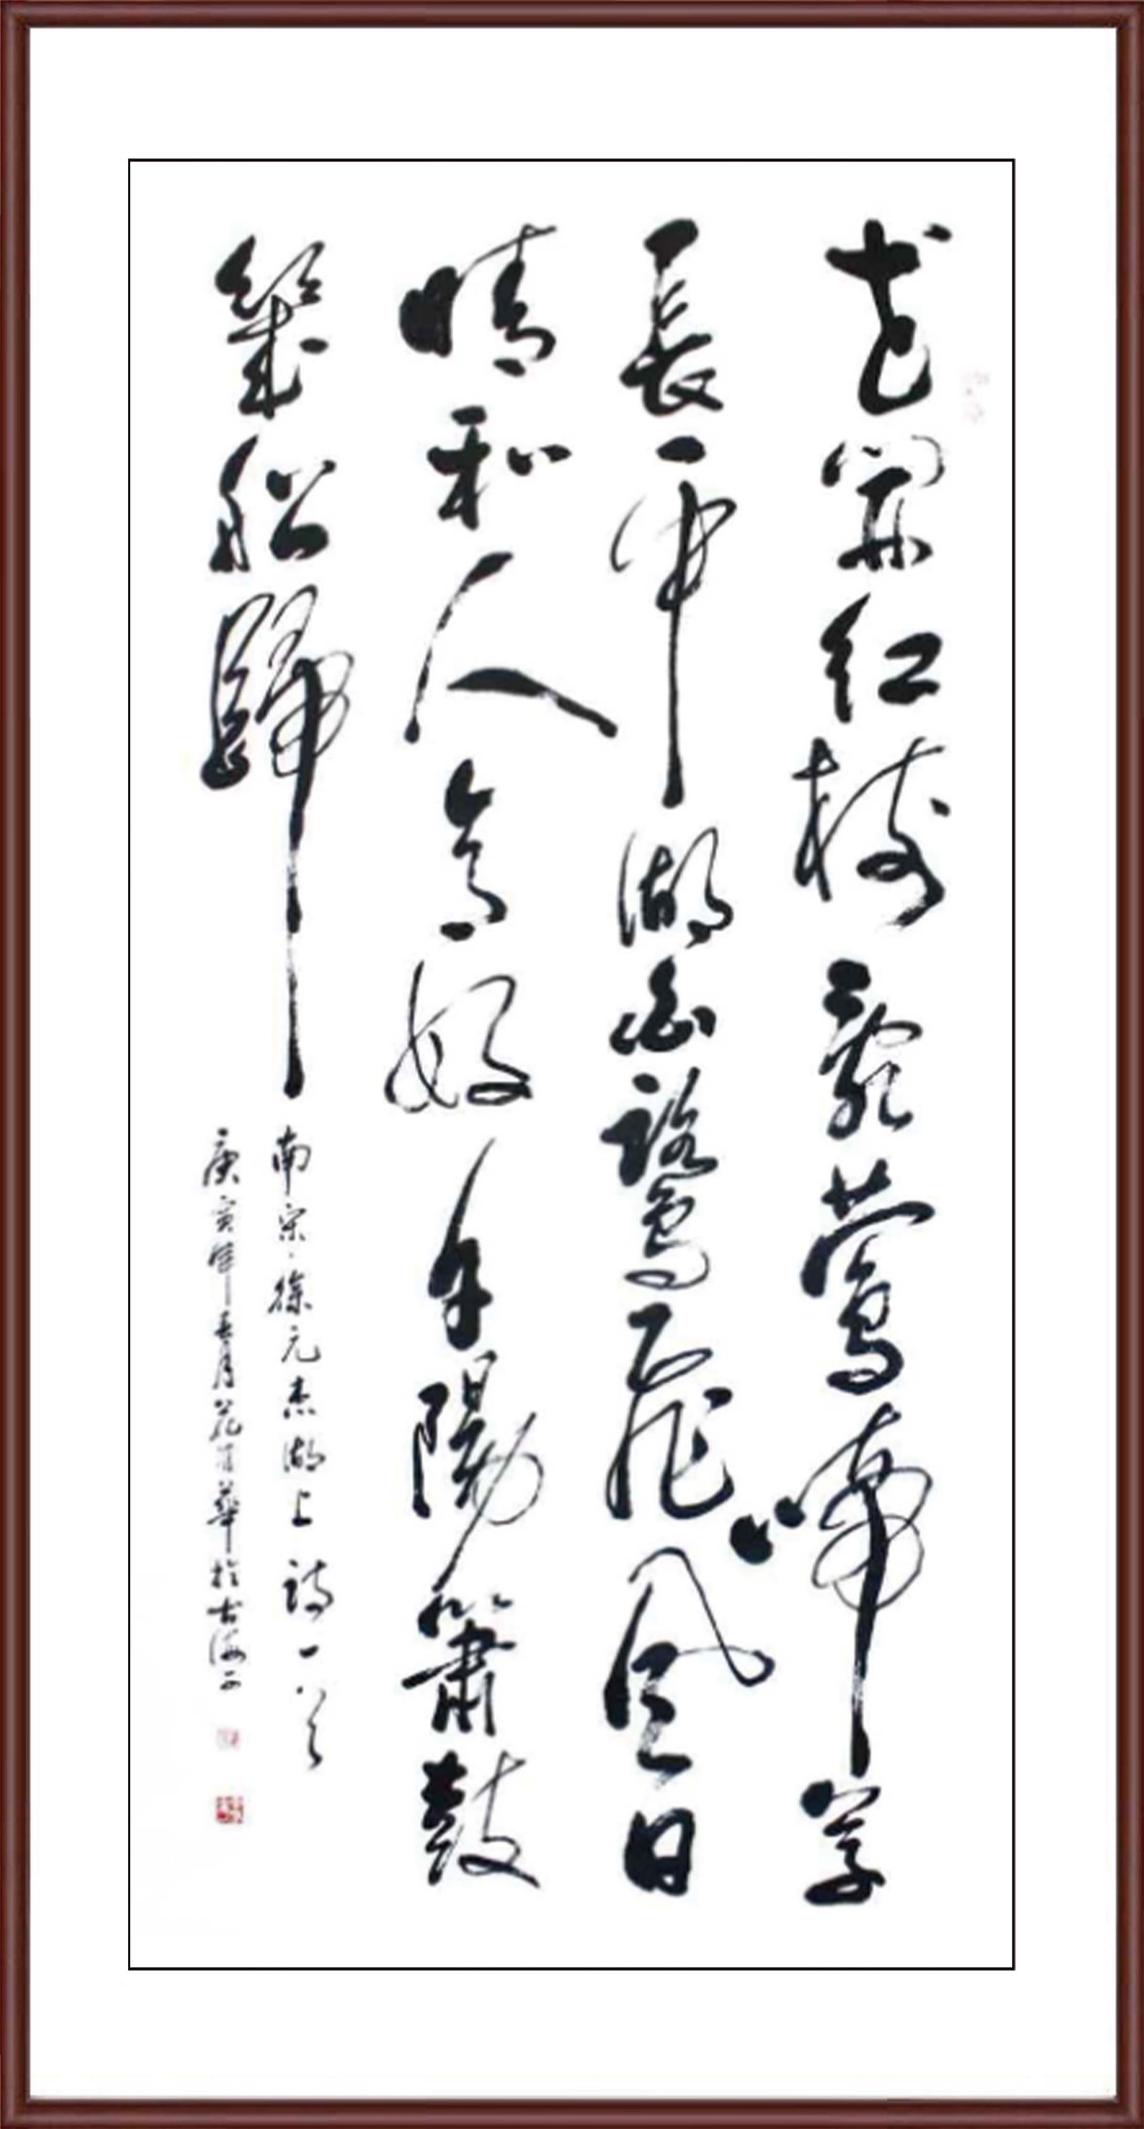 花開紅樹亂鶯啼草
長平湖白鷺飛風日
晴和人意好夕陽簫鼓
幾船歸
南宋·徐元杰湖上詩一首
庚寅年春月華於古